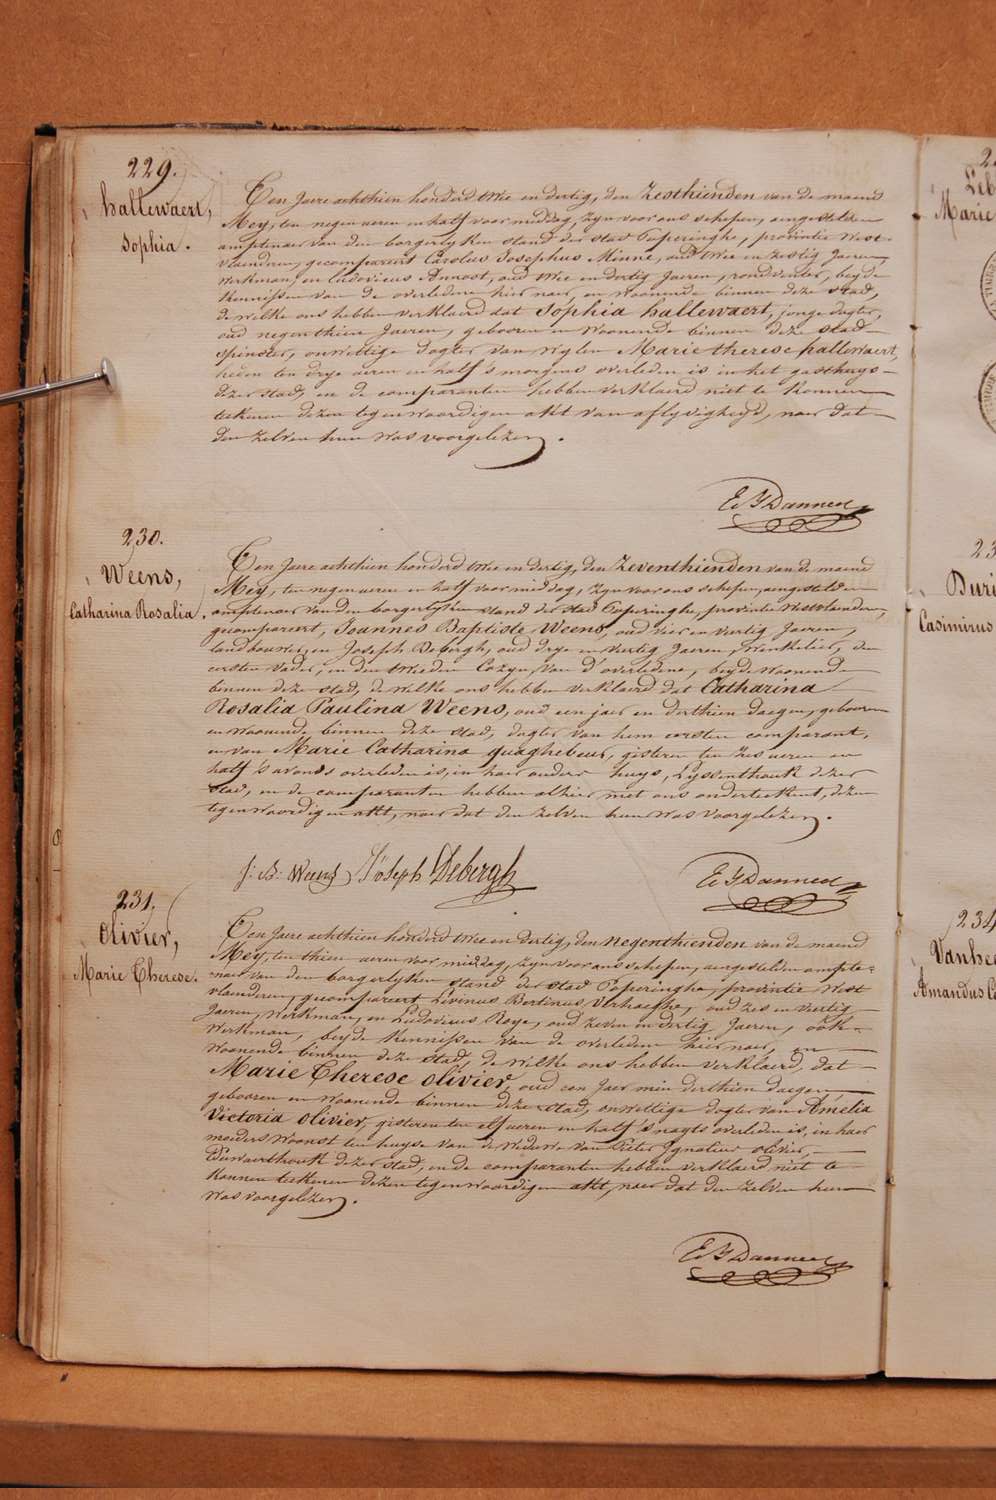 229.
hallewaert,
Sophia.
Een Jaere achthien honderd twee en dertig, den Zesthienden van de maend
Mey, ten negen ueren en half voor middag, zyn voor ons schepen, aengestelden
amptenaer van den borgerlyken stand der stad Poperinghe, provintie West-
vlaenderen, gecompareert Carolus Josephus Minne, oud twee en zestig Jaeren,
Werkman, en Ludovicus Annoot, oud twee en dertig Jaeren, rondventer, beyde
Kennissen van de overledene hier naer, en woonende binnen deze stad,
de welke ons hebben verklaerd dat Sophia hallewaert, jonge dogter,
oud negenthien Jaeren, gebooren en Woonende binnen deze stad
spinster, onwettige dogter van wylen Marie therese hallewaert,
heden ten drye ueren en half 's morgens overleden is in het gasthuys
dezer stad, en de comparanten hebben verklaerd niet te konnen
teekenen dezen tegenwoordigen akt van aflyvigheyd, naer dat
den zelven hun was voorgelezen.
E. J. Danneel
230.
Weens,
Catharina Rosalia.
Een Jaere achthien honderd twee en dertig, den Zeventhienden van de maend
Mey, ten negen ueren en half voor middag, zyn voor ons schepen, aengestelden
amptenaer van den borgerlyken stand der stad Poperinghe, provintie Westvlaenderen,
gecompareert, Joannes Baptiste Weens, oud vier en veertig Jaeren,
landbouwer, en Joseph Debergh, oud drye en veertig Jaeren, Winkelier, den
eersten vader, en den tweeden Cozyn, van d'overledene, beyde Woonend
binnen deze stad, de welke ons hebben verklaerd dat Catharina
Rosalia Paulina Weens, oud een jaer en derthien daegen, gebooren
en woonende binnen deze stad, dogter van hem eersten comparant,
en van Marie Catharina quaghebeur, gisteren ten zes ueren en
half 's avonds overleden is, in haer ouders huys, Lyssenthouk dezer
stad, en de comparanten hebben alhier met ons onderteekent, dezen
tegenwoordigen akt, naer dat den zelven hun was voorgelezen.
j: B: Weens Joseph Debergh
E. J. Danneel
231.
Olivier,
Marie Therese.
Een Jaere achthien honderd twee en dertig, den negenthienden van de maend
Mey, ten thien ueren voor middag, zyn voor ons schepen, aengestelden ampte=
naer van den borgerlyken stand der stad Poperinghe, provintie West
vlaenderen, gecompareert Livinus Bertinus Verhaeghe, oud zes en veertig
Jaeren, Werkman, en Ludovicus Roye, oud zeven en dertig Jaeren, ook
Werkman, beyde Kennissen van de overledene hier naer, en
Woonende binnen deze stad, de welke ons hebben verklaerd, dat
Marie Therese Olivier, oud een Jaer min derthien daegen,
gebooren en woonende binnen deze stad, onwettige dogter van Amelia
Victoria Olivier, gisteren ten elf ueren en half 's nagts overleden is, in haer
moeders woonst ten huyse van de Weduwe van Pieter Ignatius Olivier,
dezer stad, en de comparanten hebben verklaerd niet te
konnen teekenen dezen tegenwoordigen akt, naer dat den zelven hun
was voorgelezen.
E. J. Danneel
Marie
Casimirus
234